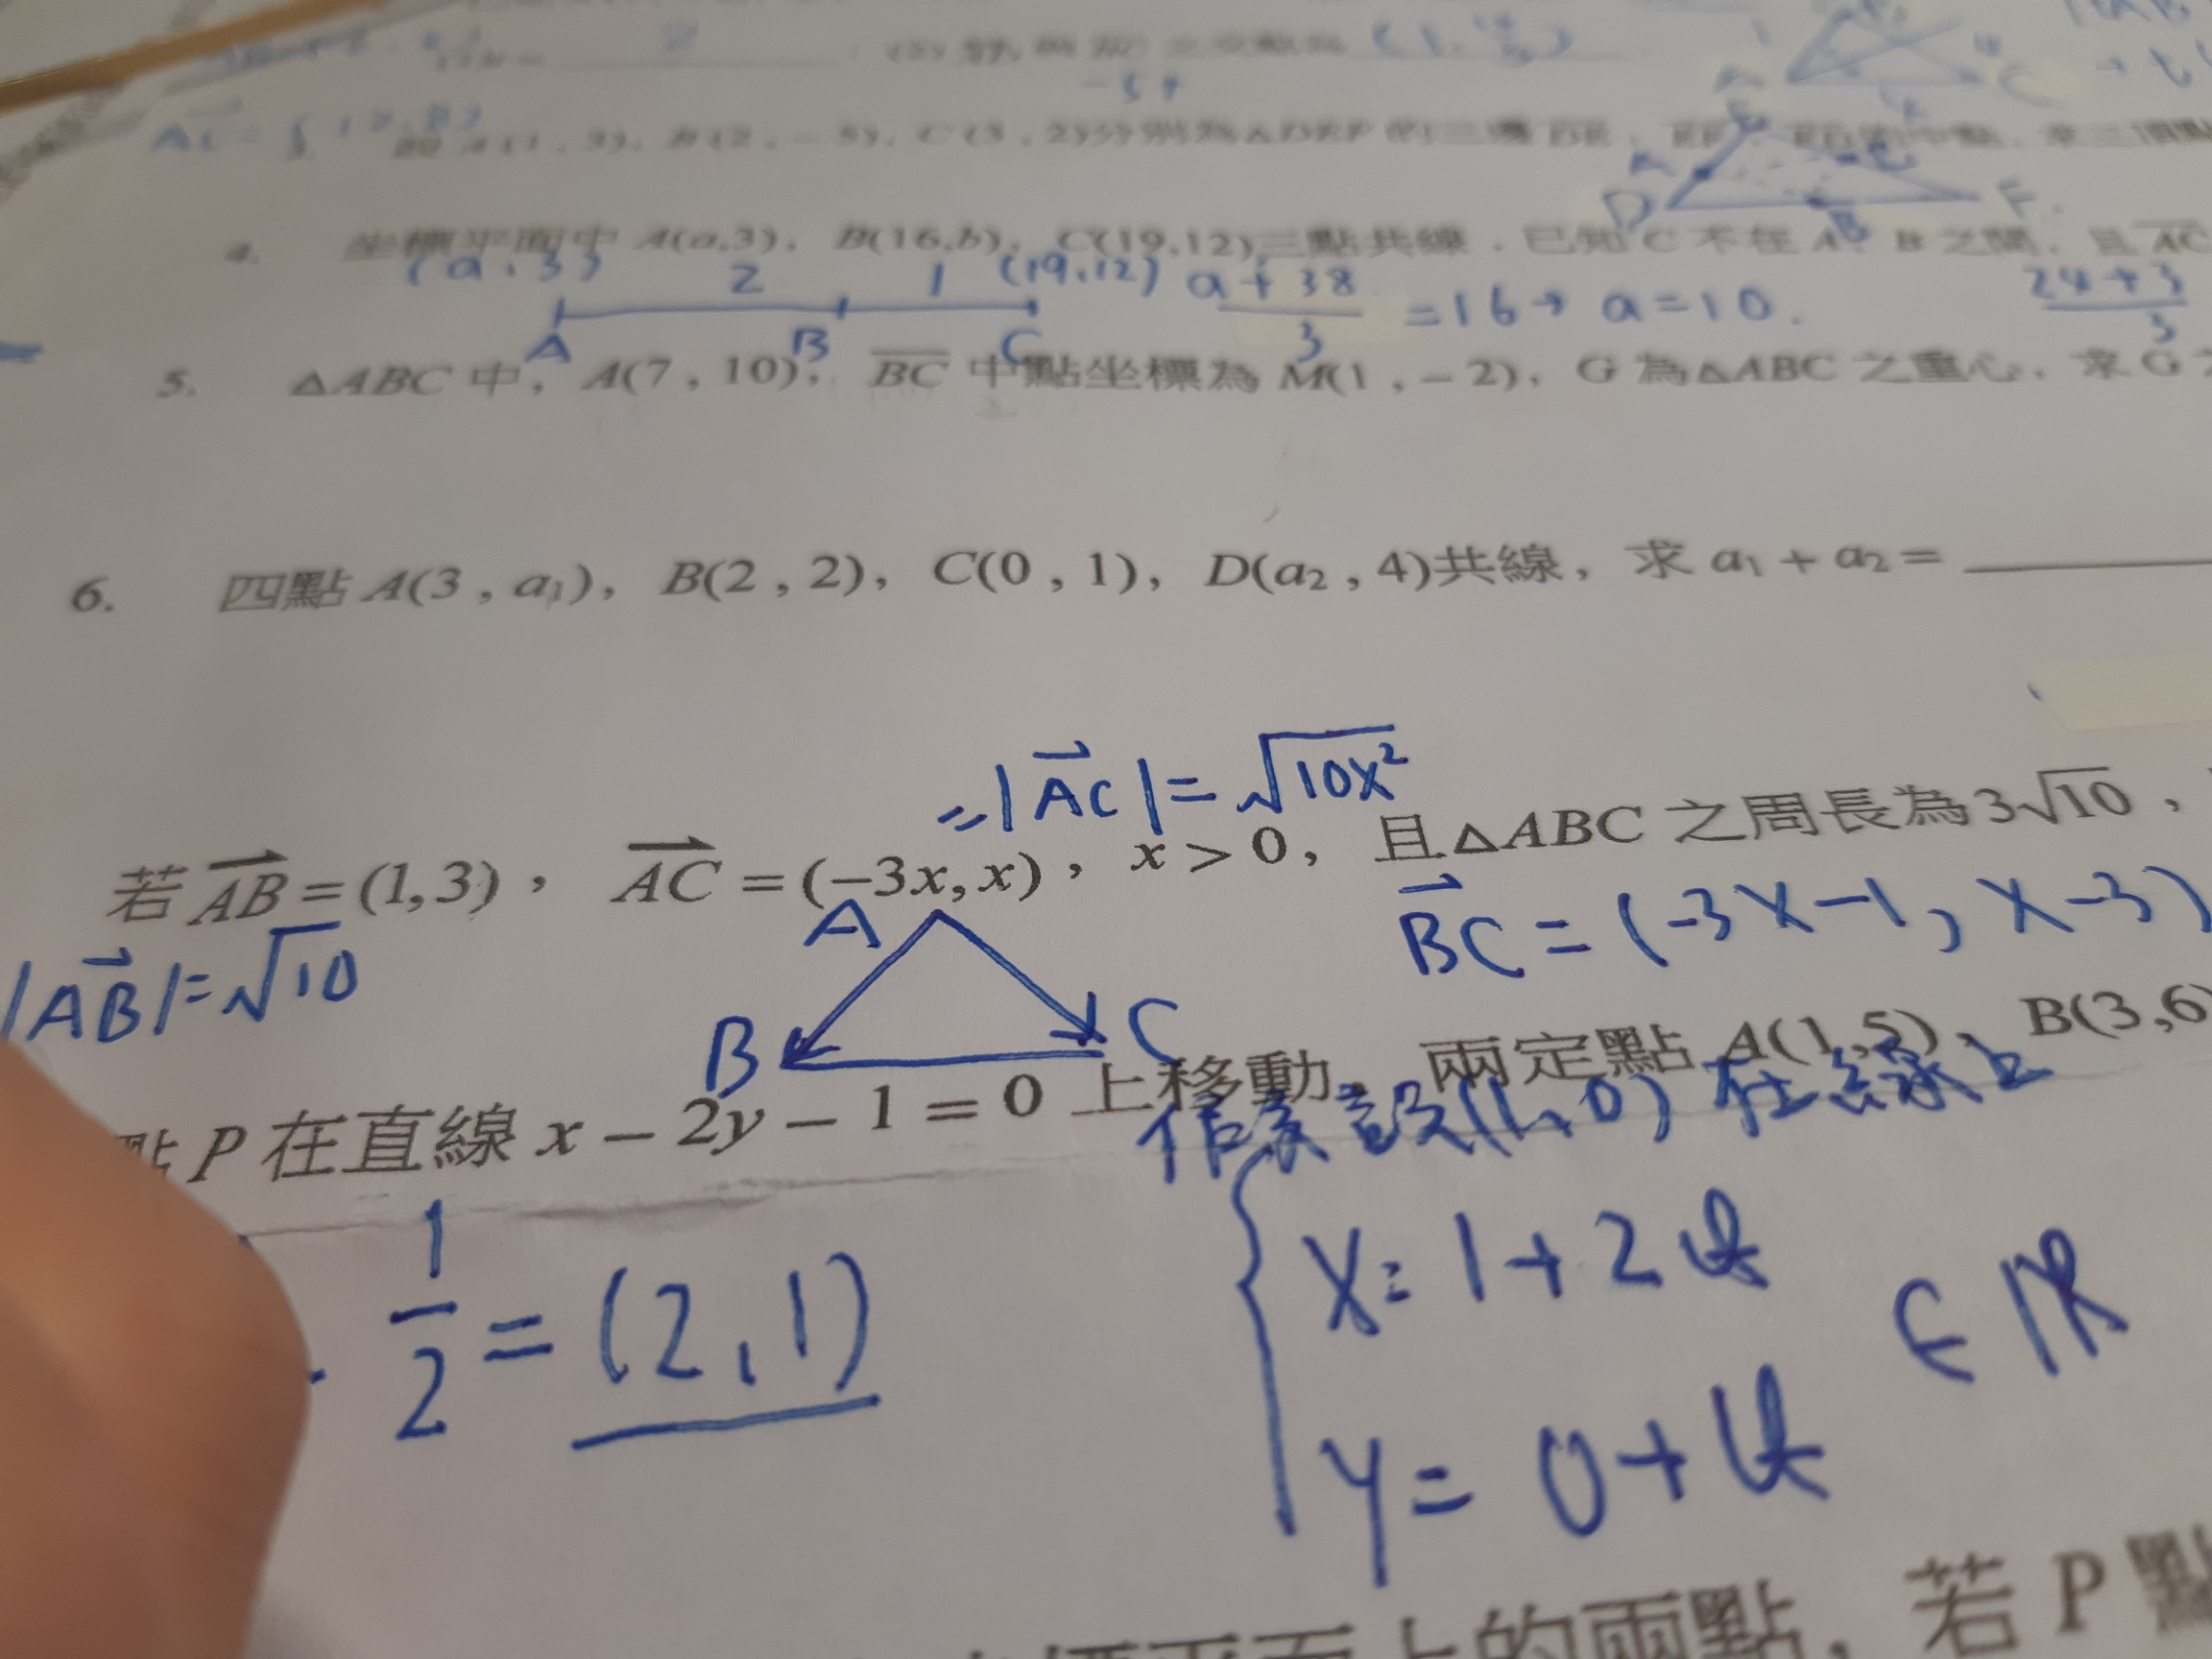 2
(1,
-54
AC =
A(1,3), B(2,-5), C(3,2)分別為△DEF的三邊DE, EF, FD的中點, 求三頂點
D
F
4. 坐標平面中 A(a,3), B(16,b), C(19,12)三點共線. 已知 C 不在 A B 之間, 且 AC
(a,3) 2 1 (19,12) (a+38)/3 =16→ a=10. (24+3)/3
A B C
5. △ABC 中, A(7, 10), BC 中點坐標為 M(1, -2), G 為△ABC 之重心, 求 G
6. 四點 A(3, a₁), B(2, 2), C(0, 1), D(a₂, 4)共線, 求 a₁ + a₂ =
|AC|= √10x²
若 AB = (1,3), AC = (-3x, x), x > 0, 且△ABC 之周長為 3√10,
BC = (-3x-1, x-3)
|AB|=√10
A
B C
點 P 在直線 x - 2y - 1 = 0 上移動, 兩定點 A(1,5)、B(3,6
假設(1,0) 在線上
1/2 = (2,1)
x= 1+2t
∈ R
y= 0+t
平面上的兩點, 若 P 點